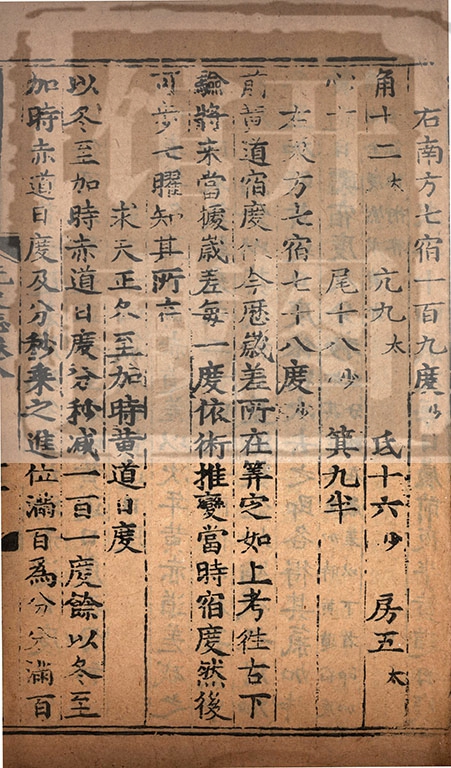 右南方七宿一百九度少
角十二太 亢九太 氐十六少 房五太
心 尾十八少 箕九半
右東方七宿七十八度少
前黃道宿度依今歷歲差所在筭定如上考徃古下
驗將来當據歲差每一度依術推變當時宿度然後
可步七曜知其所在
求天正冬至加時黃道日度
以冬至加時赤道日度分秒减一百一度餘以冬至
加時赤道日度及分秒乗之進位滿百為分分滿百